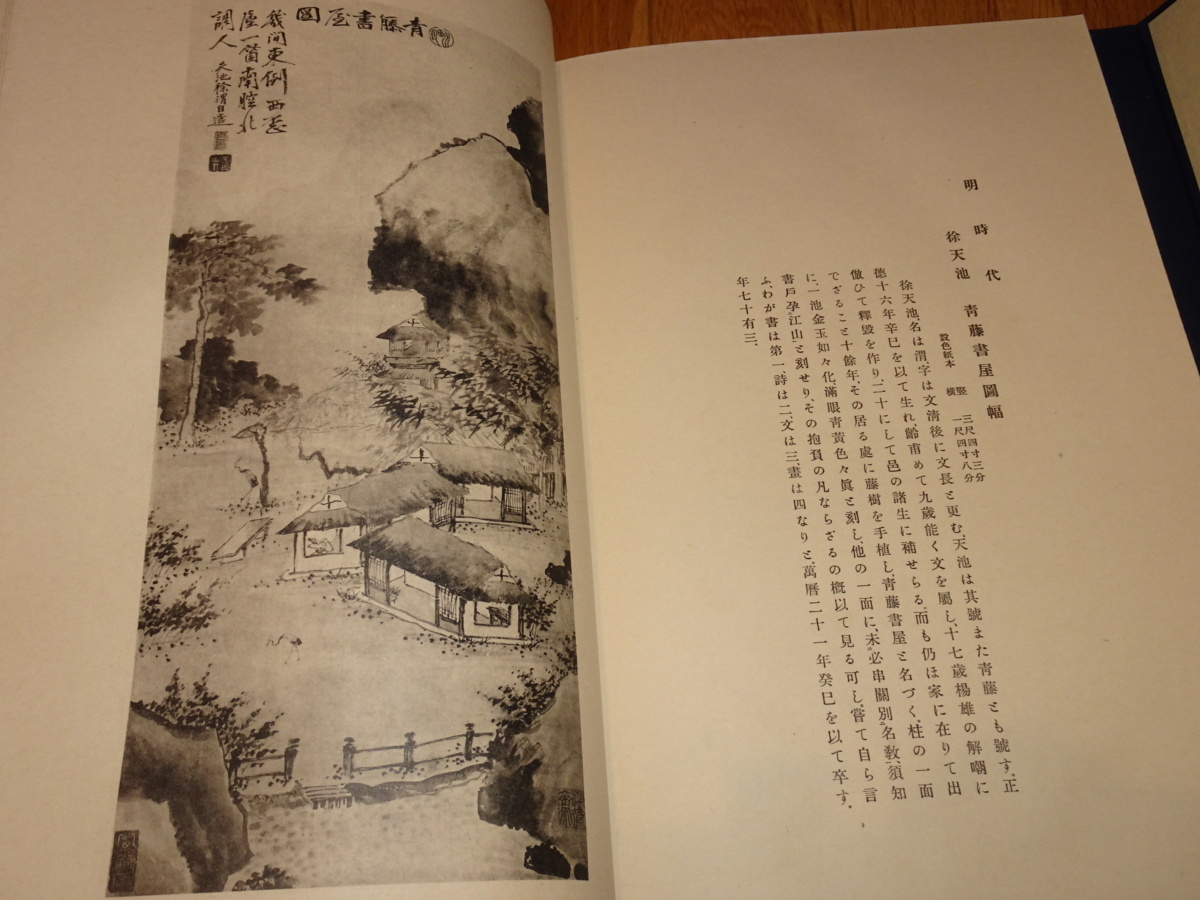 青藤書屋圖
幾間東倒西歪
屋一箇南腔北
調人
天池徐渭自
明時代
徐天池 靑藤書屋圖幅
設色紙本
竪 三尺四寸三分
橫 一尺四寸八分
徐天池、名は渭、字は文淸後に文長と更む、天池は其號また靑藤とも號す、正
德十六年辛巳を以て生れ、齡甫めて九歲能く文を屬し、十七歲楊雄の解嘲に
倣ひて釋毀を作り、二十にして邑の諸生に補せらる、而も仍ほ家に在りて出
でざること十餘年、その居る處に藤樹を手植し、靑藤書屋と名づく、柱の一面
に、一池金玉如々化、滿眼靑黃色々眞と刻し、他の一面に、未必串關別名敎、須知
書戶孕江山と刻せり、その抱負の凡ならざるの槪以て見る可し、嘗て自ら言
ふ、わが書は第一、詩は二、文は三、畫は四なりと、萬曆二十一年癸巳を以て卒す、
年七十有三、